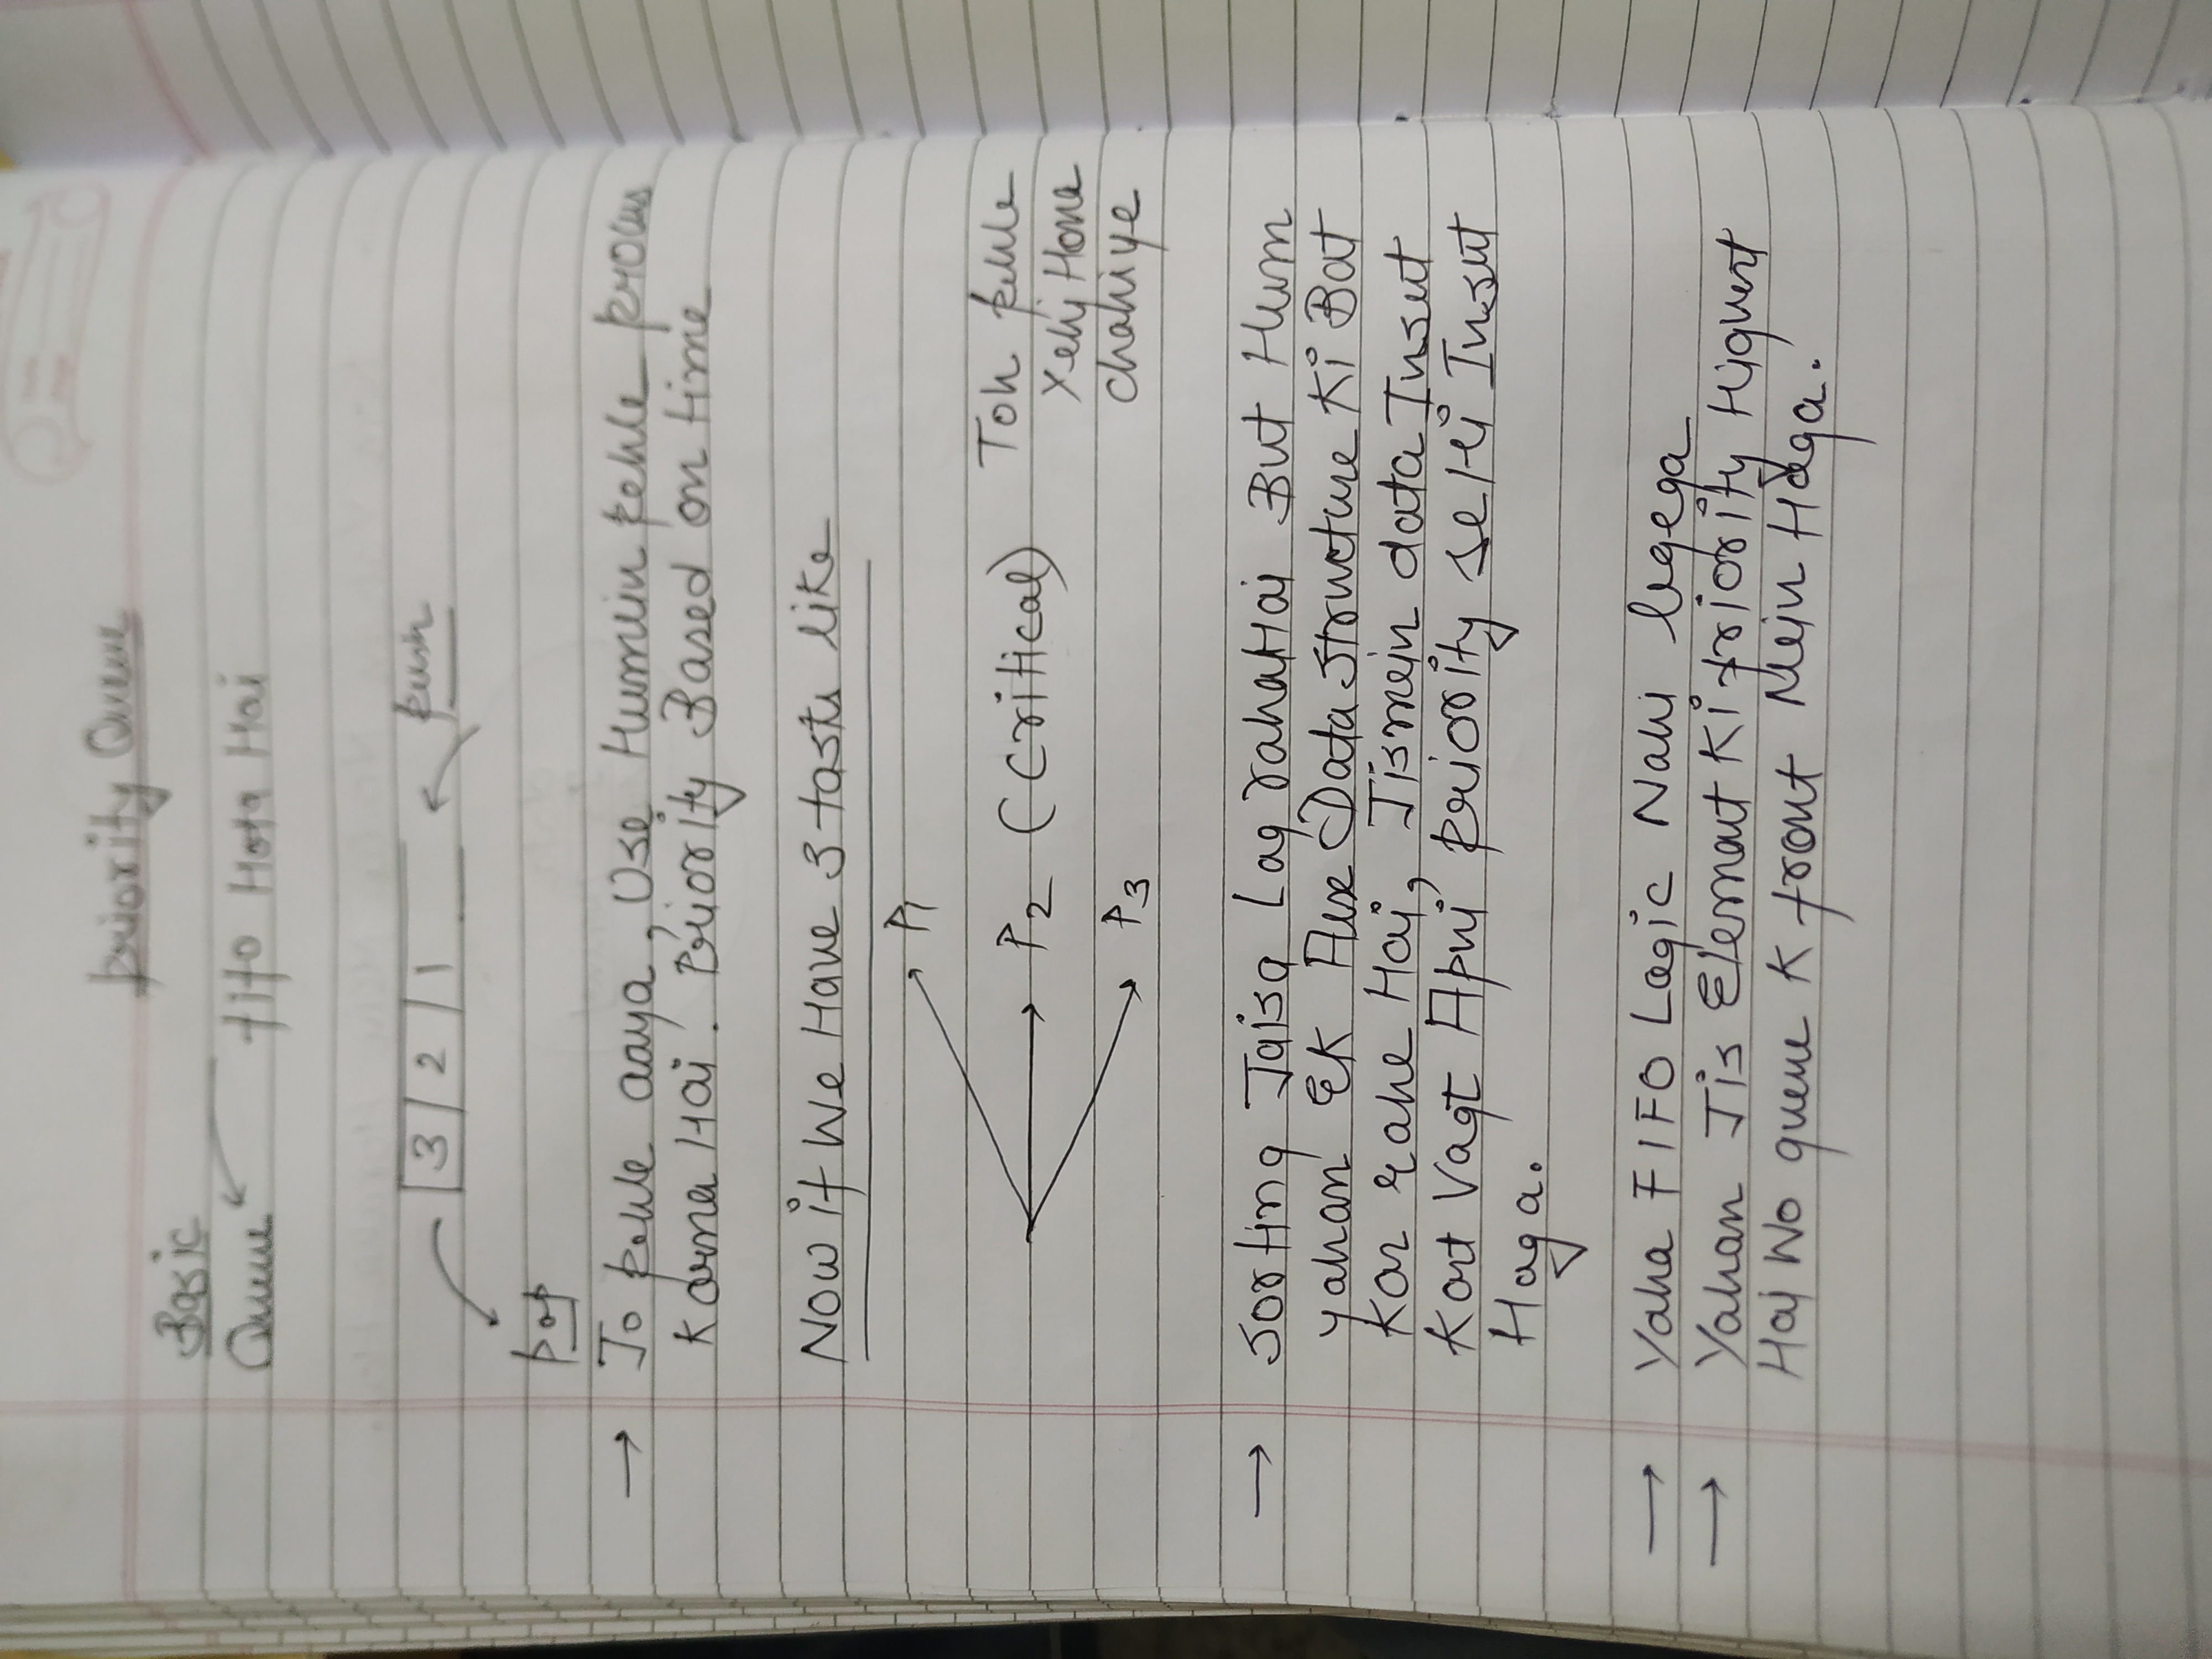 Priority Queue
Basic
Queue
fifo Hota Hai
3 2 1
push
pop
→ Jo pehle aaya, Use Humein pehle process
Karna Hai. Priority Based on time
Now if We Have 3 tasks like
P1
P2 (Critical)
Toh pehle
Yehi Hona
chahiye
P3
→ Sorting Jaisa Lag raha Hai But Hum
yahan Ek Aise Data Structure Ki Bat
Kar rahe Hai, Jismein data Insert
Kart Vaqt Apni priority se Hi Insert
Hoga.
→ Yaha FIFO Logic Nahi lagega
→ Yahan Jis Element Ki priority Highest
Hai Wo queue K front Mein Hoga.